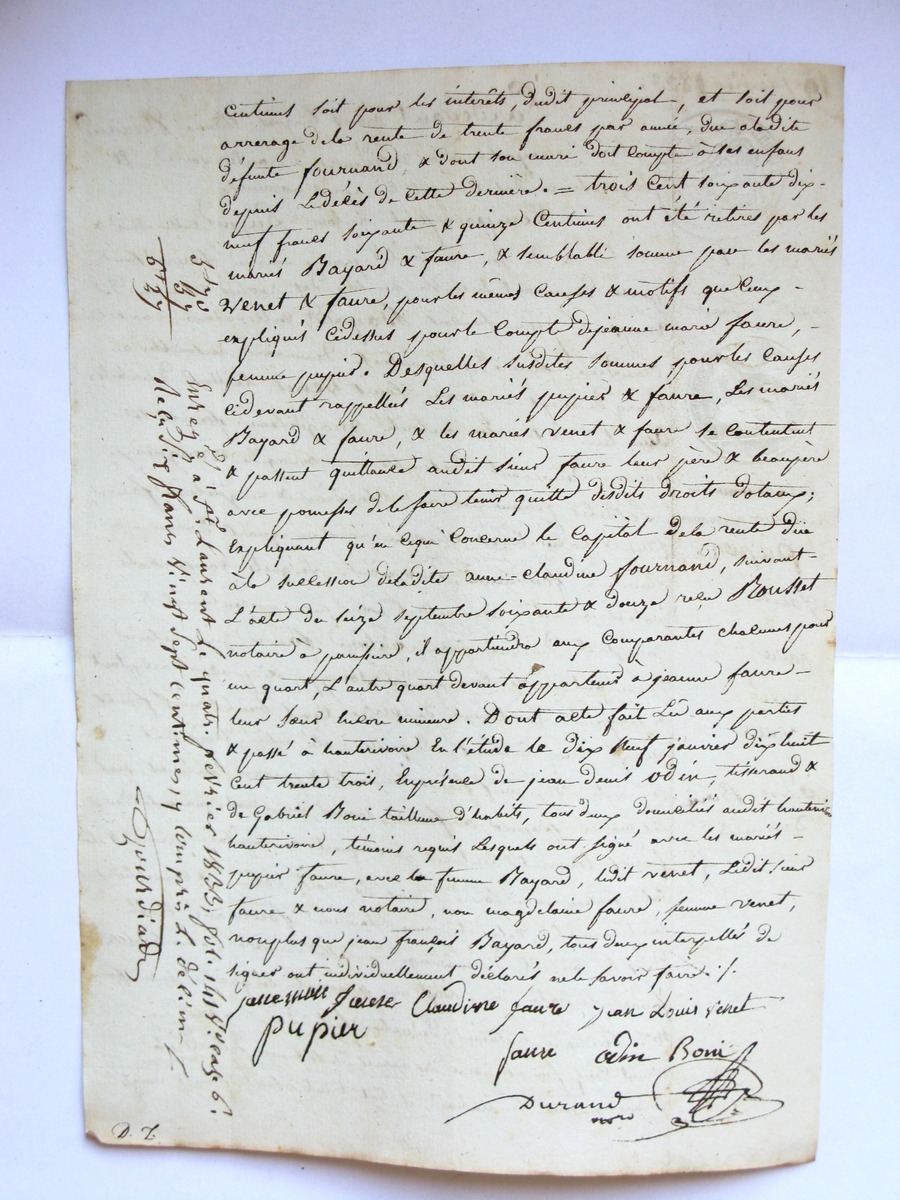 centimes soit pour les interêts, dudit principal, et soit pour
arrerage de la rente de trente francs par année, due a ladite
défunte fournand, & dont son mari doit compte à ses enfans
depuis le décès de cette dernière. = trois cent soixante dix-
neuf francs soixante & quinze centimes ont été retires par les
mariés Bayard & faure, & semblable somme par les mariés
Venet & faure, pour les mêmes causes & motifs que ceux-
expliqués cidessus pour le compte de jeanne marie faure,-
femme pupier. Desquelles susdites sommes pour les causes
cidevant rappellées Les mariés pupier & faure, Les mariés
Bayard & faure, & les mariés venet & faure se contentent
& passent quittance audit sieur faure leur père & beaupère
avec promesses de le faire tenir quitte desdits droits dotaux;
Expliquant qu'en ce qui concerne le capital de la rente düe
à la succession de ladite anne-claudine fournand, suivant
L'acte du seize septembre soixante & douze reçu Rousset
notaire à panissière, il appartiendra aux comparantes chacunes pour
un quart, L'autre quart devant appartenir à jeanne faure-
leur sœur encore mineure. Dont acte fait Lu aux parties
& passé à hauterivoire En l'étude le dix neuf janvier dix huit
cent trente trois, En présence de jean denis odin, tisserand &
de Gabriel Boni tailleur d'habits, tous deux domiciliés audit hauterivoire
hauterivoire, témoins requis Lesquels ont signé avec les mariés-
pupier faure, avec la femme Bayard, ledit venet, Ledit sieur
faure & nous notaire, non magdelaine faure, femme venet,
nonplus que jean françois Bayard, tous deux interpellés de
signer ont individuellement déclarés ne le savoir faire./.
jannemari faure Claudinne faure jean Louis venet
pupier
faure odin Boni
Durand
nore
D. T.
5 70
57
6 27
Enregé à St. Laurent Le quatre février 1833, fol. 141 Vo case 6.
Reçu Six francs Vingt sept centimes y compris L. décime